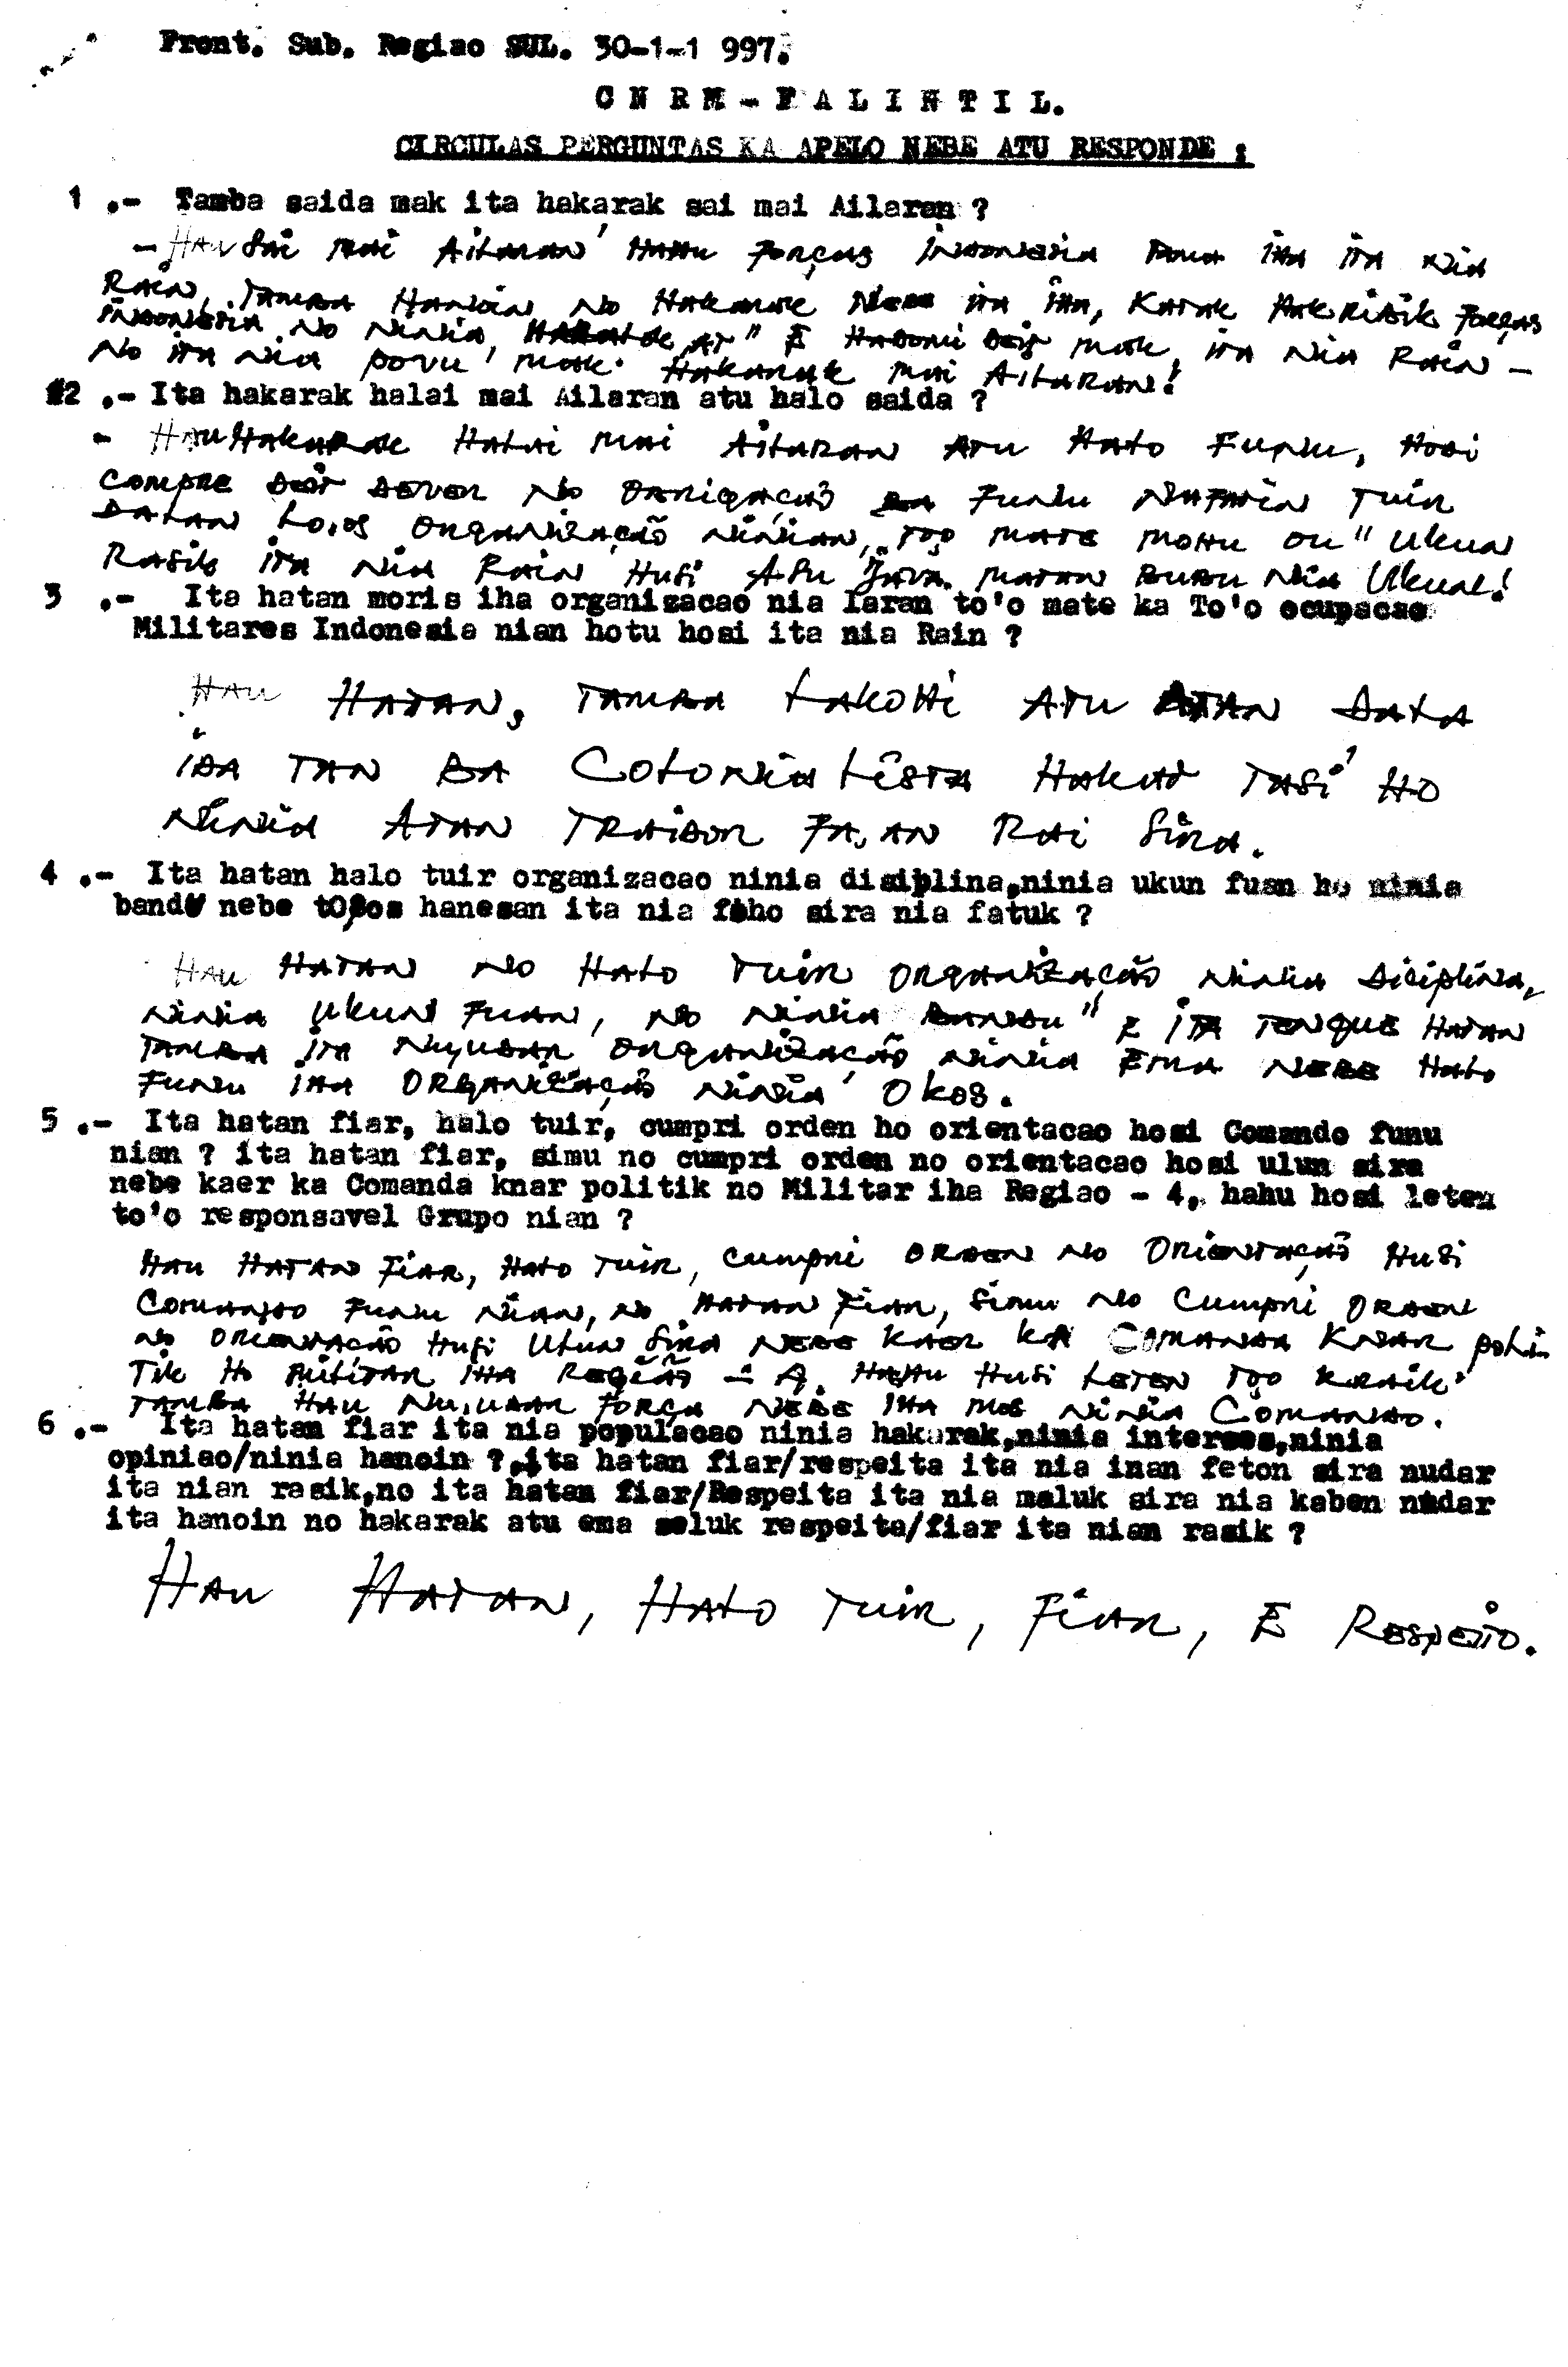 Pront. Sub. Regiao SUL. 30-1-1 997.
C N R M - F A L I N T I L.
CIRCULAS PERGUNTAS KA APELO NEBE ATU RESPONDE :
1 .- Tamba saida mak ita hakarak sai mai Ailaran ?
- HAU SAI MAI AILARAN HAHU FORÇAS INDONESIA TAMA IHA ITA NIA
RAIN, TAMBA HANOIN NO HAKARAK NEBE ITA IHA, KATAK HAKRIBIK FORÇAS
INDONESIA NO NINIA, AT" E HADOMI DEIT MAK, ITA NIA RAIN -
NO ITA NIA POVU MAK HAKARAK MAI AILARAN!
2 .- Ita hakarak halai mai Ailaran atu halo saida ?
- HAU HAKARAK HALAI MAI AILARAN ATU HALO FUNU, HODI
COMPRE DEIT DEVER NO OBRIGAÇÃO BA FUNU NAFATIN TUIR
DALAN LO,OS ORGANIZAÇÃO NINIAN, TOO MATE MOHU OU "UKUN
RASIK ITA NIA RAIN HUSI ASU JAVA MATAN BUBU NIA UKUN!
3 .- Ita hatan moris iha organizacao nia laran to'o mate ka To'o ocupacao
Militares Indonesia nian hotu hosi ita nia Rain ?
HAU HATAN, TAMBA LAKOHI ATU ATAN DALA
IDA TAN BA COLONIALISTA HAKAT TASI HO
NINIA ATAN TRAIDOR FA,AN RAI SIRA.
4 .- Ita hatan halo tuir organizacao ninia disiplina,ninia ukun fuan ho ninia
bandu nebe tO,os hanesan ita nia foho sira nia fatuk ?
HAU HATAN NO HALO TUIR ORGANIZAÇÃO NINIA DICIPLINA,
NINIA UKUN FUAN, NO NINIA BANDU" E ITA TENQUE HATAN
TAMBA ITA NU,UDAR ORGANIZAÇÃO NINIA EMA NEBE HALO
FUNU IHA ORGANIZAÇÃO NINIA OKOS.
5 .- Ita hatan fiar, halo tuir, cumpri orden ho orientacao hosi Comando funu
nian ? ita hatan fiar, simu no cumpri orden no orientacao hosi ulun sira
nebe kaer ka Comanda knar politik no Militar iha Regiao - 4, hahu hosi leten
to'o responsavel Grupo nian ?
HAU HATAN FIAR, HALO TUIR, CUMPRI ORDEN NO ORIENTAÇÃO HUSI
COMANDO FUNU NIAN, NO HATAN FIAR, SIMU NO CUMPRI ORDEN
NO ORIENTAÇÃO HUSI ULUN SIRA NEBE KAER KA COMANDA KNAR POLI-
TIK HO MILITAR IHA REGIÃO - 4. HAHU HUSI LETEN TOO KRAIK
TAMBA HAU NU,UDAR FORÇA NEBE IHA MOS NINIA COMANDO.
6 .- Ita hatan fiar ita nia populacao ninia hakarak,ninia interses,ninia
opiniao/ninia hanoin ?,ita hatan fiar/respeita ita nia inan feton sira nudar
ita nian rasik,no ita hatan fiar/Respeita ita nia maluk sira nia kaben nudar
ita hanoin no hakarak atu ema seluk respeita/fiar ita nian rasik ?
HAU HATAN, HALO TUIR, FIAR, E RESPEITO.